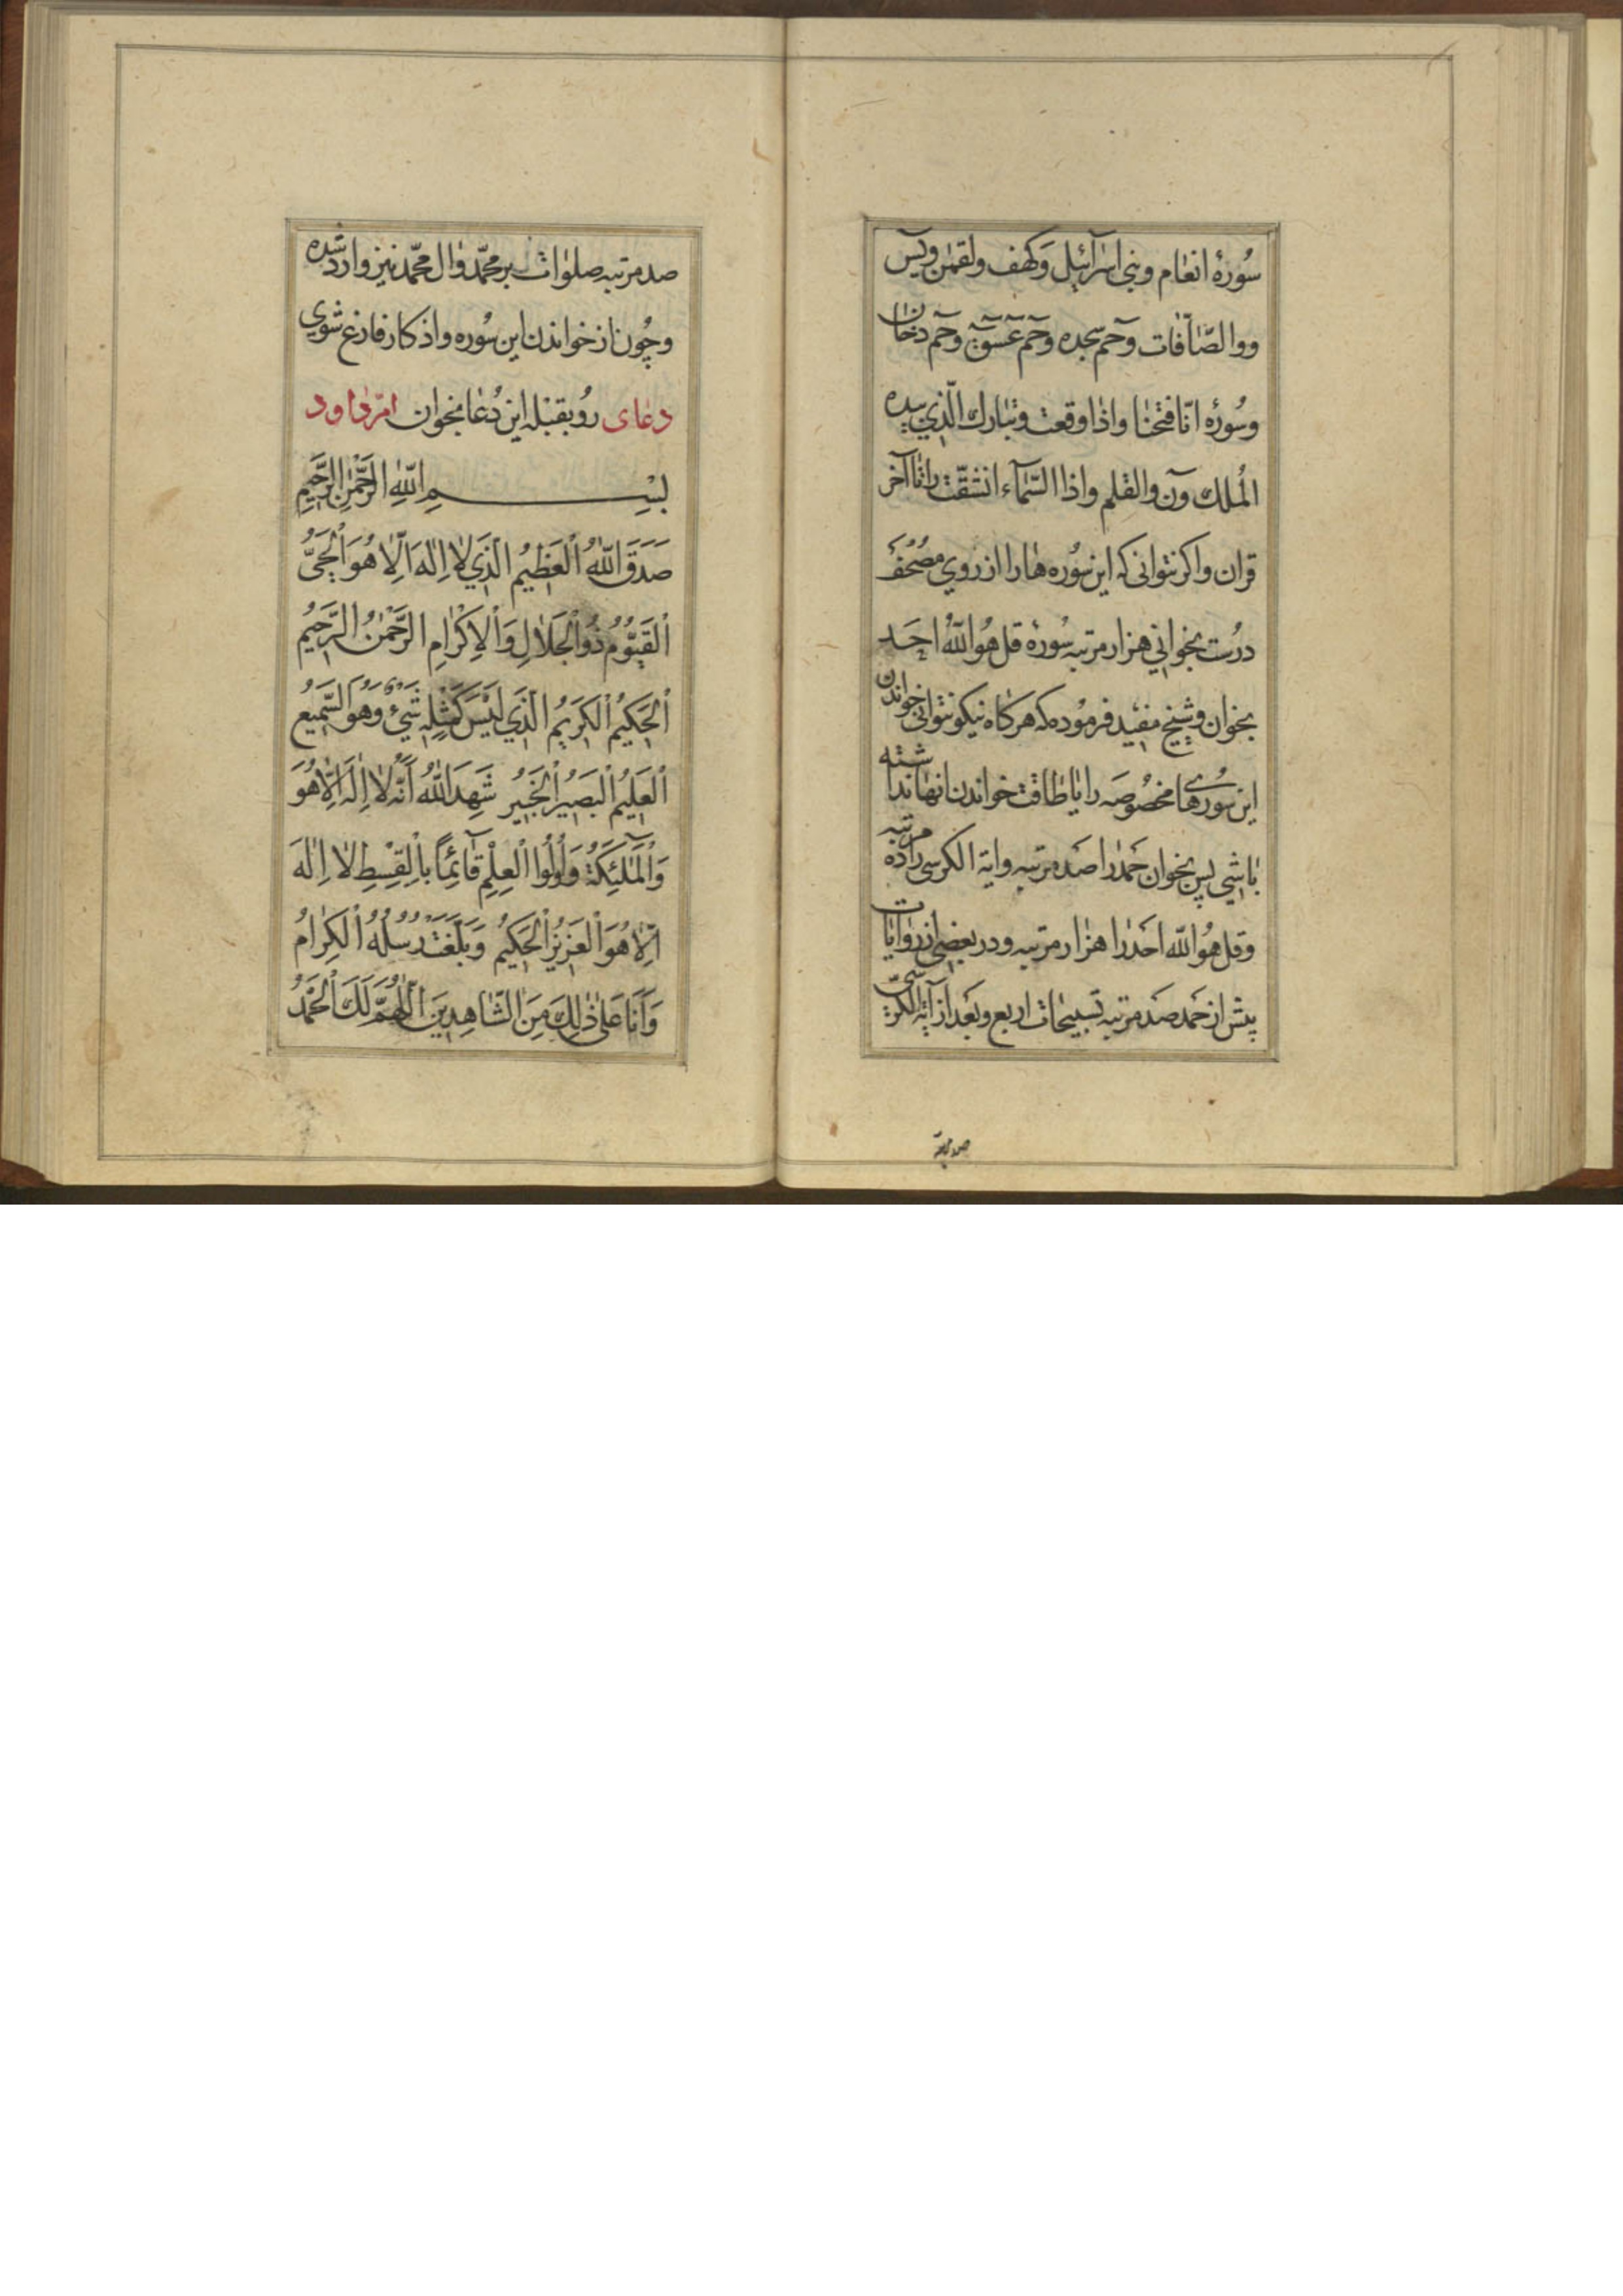 سُورهٔ انعٰام وبنی اسرٰآئیل وَکهف ولقمٰن ویٓس
ووالصّٰافّات وحٓم سجده وحٓم عٓسٓقٓ وحٓم دخان
وسُورهٔ انّا فتحنٰا واذٰا وقعت وتبٰارك الّذي بیده
المُلك ونٓ والقلم واذا السّمٰآء انشقّت راتٰا آخر
قران واکر نتوانی که این سُوره هٰا را از روي مصُحَف
درُست بخوٰاني هزار مرتبه سُورهٔ قل هُوالله احَد
بخوان وشیخ مفید فرمُوده که هرکاه نیکو نتوانی خواندن
این سُورهای مخصُوصَه را یا طاقت خواندن انها نداشته
بٰاشي پس بخوان حَمد را صَد مرتبه وایة الکرسی را ده مرتبه
وقل هُوالله احَد را هزٰار مرتبه ودر بعضی از روٰایٰات
پیش از حَمد صَد مرتبه تسبیحٰات اربع وبَعد از آیة الکرسیّ
صد مرتبه
صد مرتبه صلوٰات بر محمّد وٰال محمّد نیز وارد شده
وچُون از خواندن این سُوره واذکار فارغ شوي
دعٰای رُوبقبله این دُعٰا بخوان امّ دٰاود
بِسْمِ اللّٰهِ الرَّحْمٰنِ الرَّحِيمِ
صَدَقَ اللّٰهُ الْعَظِيمُ الَّذِي لٰا اِلٰهَ اِلّٰا هُوَ الْحَيُّ
الْقَيُّومُ ذُوالْجَلٰالِ وَالْاِكْرٰامِ الرَّحْمٰنُ الرَّحِيمُ
الْحَكِيمُ الْكَرِيمُ الَّذِي لَيْسَ كَمِثْلِهِ شَيْءٌ وَهُوَ السَّمِيعُ
الْعَلِيمُ الْبَصِيرُ الْخَبِيرُ شَهِدَ اللّٰهُ اَنَّهُ لٰا اِلٰهَ اِلّٰا هُوَ
وَالْمَلٰئِكَةُ وَاُولُوا الْعِلْمِ قٰآئِمًا بِالْقِسْطِ لٰا اِلٰهَ
اِلّٰا هُوَ الْعَزِيزُ الْحَكِيمُ وَبَلَّغَتْ رُسُلُهُ الْكِرٰامُ
وَاَنَا عَلٰى ذٰلِكَ مِنَ الشّٰاهِدِينَ اَللّٰهُمَّ لَكَ الْحَمْدُ